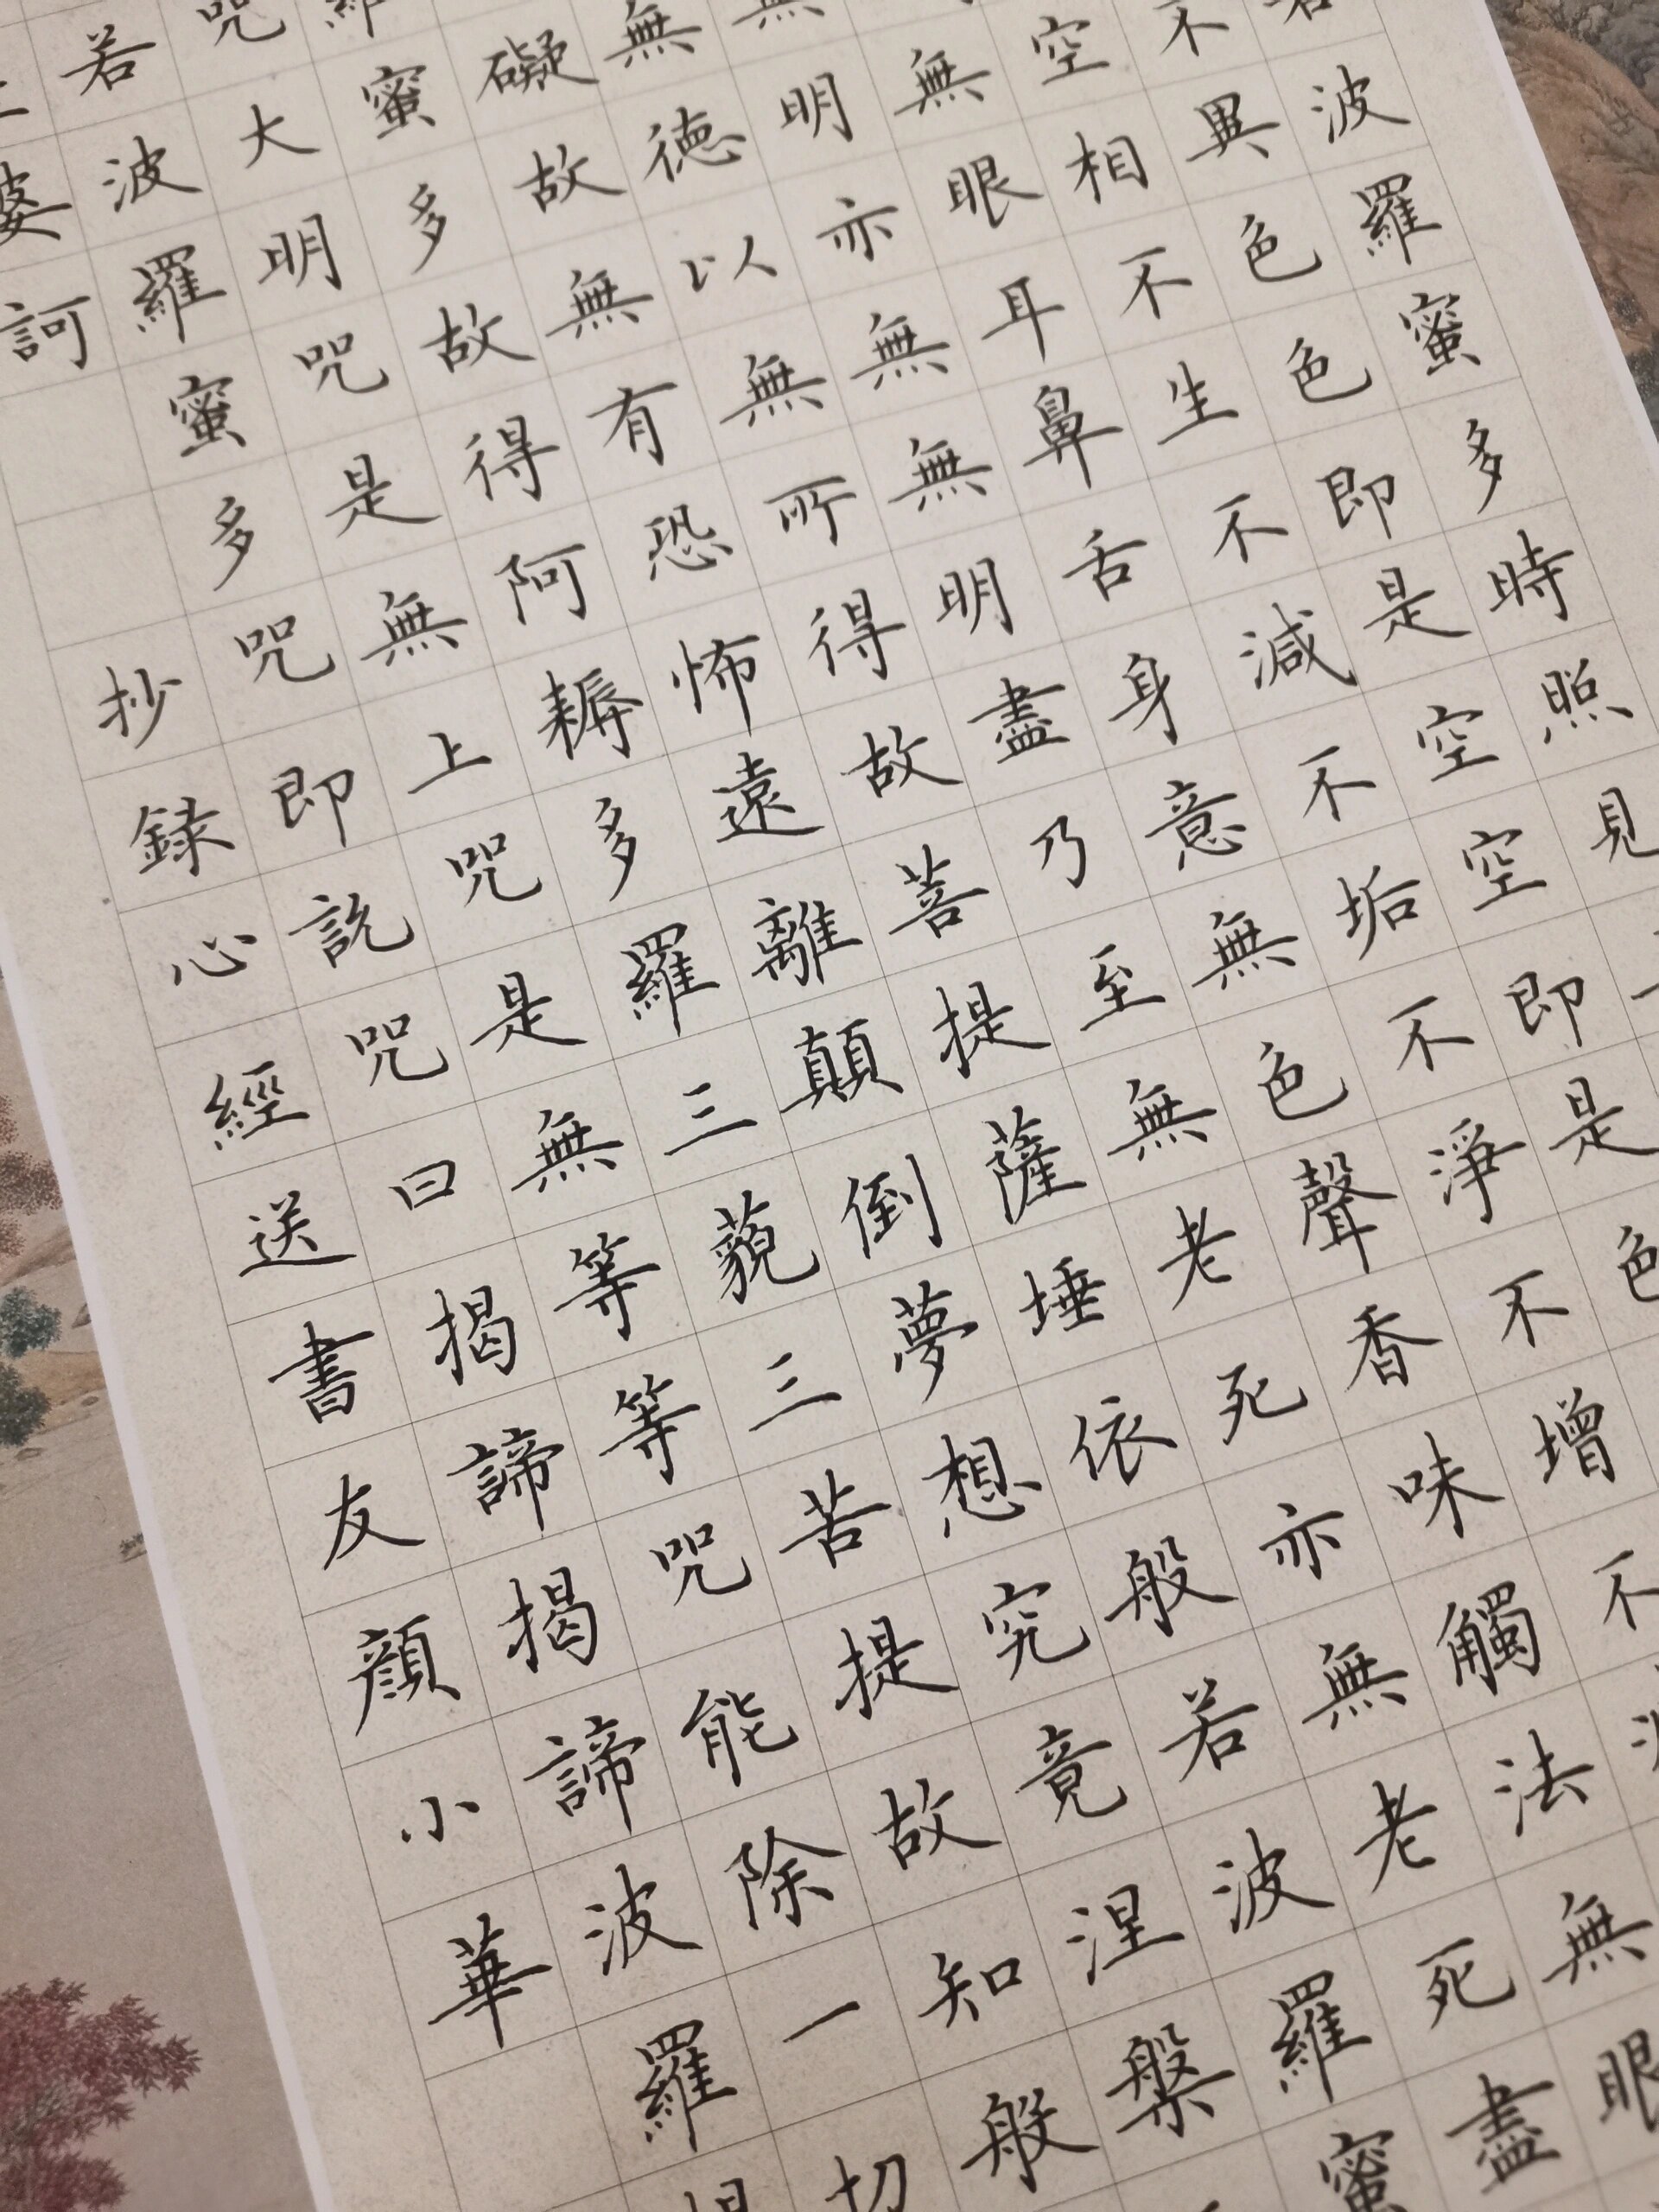 若波羅蜜多時照見
不異色色即是空空即是色
空相不生不減不垢不淨不增不
無眼耳鼻舌身意無色聲香味觸法無眼
無明亦無無明盡乃至無老死亦無老死盡
無德以無所得故菩提薩埵依般若波羅蜜
礙故無有恐怖遠離顛倒夢想究竟涅槃
蜜多故得阿耨多羅三藐三苦提故知般
咒大明咒是無上咒是無等等咒能除一切
若波羅蜜多咒即說咒曰揭諦揭諦波羅揭
婆訶 抄錄心經送書友顏小華